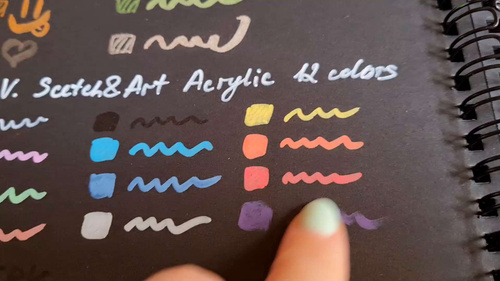 V. Scetch&Art Acrylic 12 colors